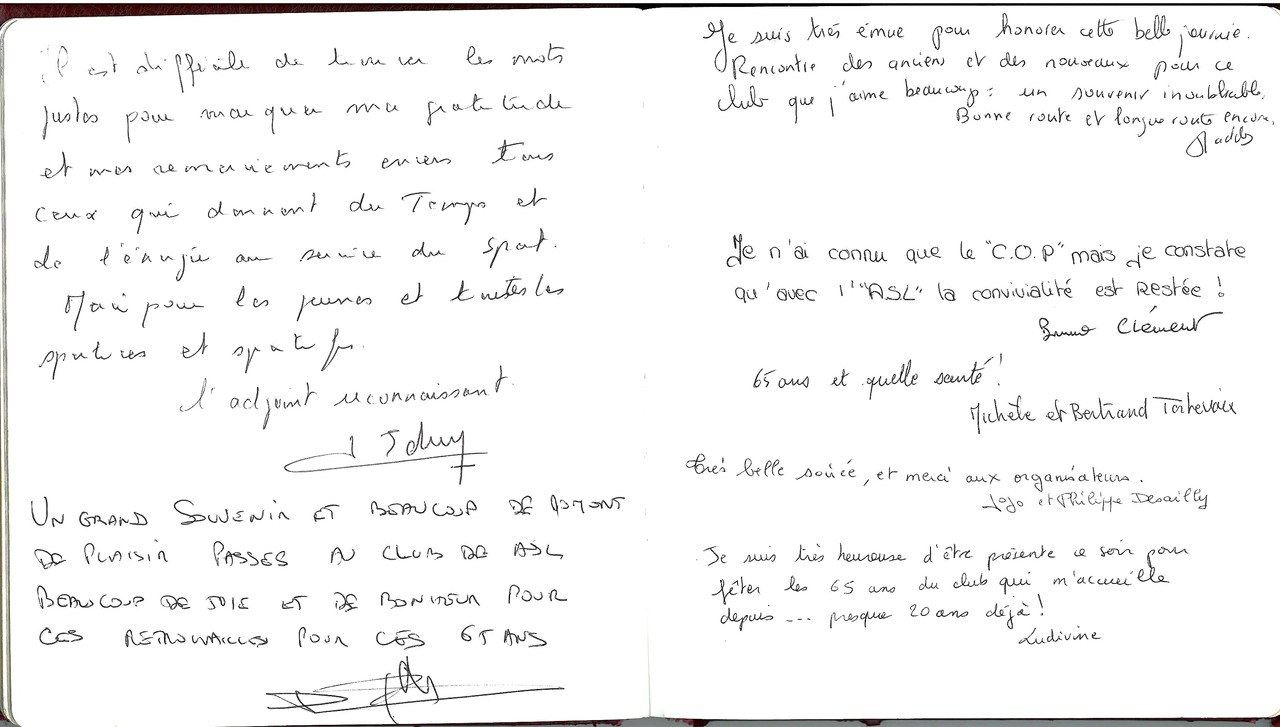 il est difficile de trouver les mots
justes pour marquer ma gratitude
et mes remerciements envers tous
ceux qui donnent du Temps et
de l'énergie au service du sport.
Merci pour les jeunes et toutes les
sportives et sportifs.
L'adjoint reconnaissant.
UN GRAND SOUVENIR ET BEAUCOUP DE MOMENT
DE PLAISIR PASSES AU CLUB DE ASL
BEAUCOUP DE JOIE ET DE BONHEUR POUR
CES RETROUVAILLES POUR CES 65 ANS
Je suis très émue pour honorer cette belle journée.
Rencontre des anciens et des nouveaux pour ce
club que j'aime beaucoup : un souvenir inoubliable.
Bonne route et longue route encore.
Je n'ai connu que le "C.O.P" mais je constate
qu'avec l'"ASL" la convivialité est Restée !
Bruno Clément
65 ans et quelle santé !
Michèle et Bertrand
Très belle soirée, et merci aux organisateurs.
Jojo et Philippe Desailly
Je suis très heureuse d'être présente ce soir pour
fêter les 65 ans du club qui m'accueille
depuis ... presque 20 ans déjà !
Ludivine